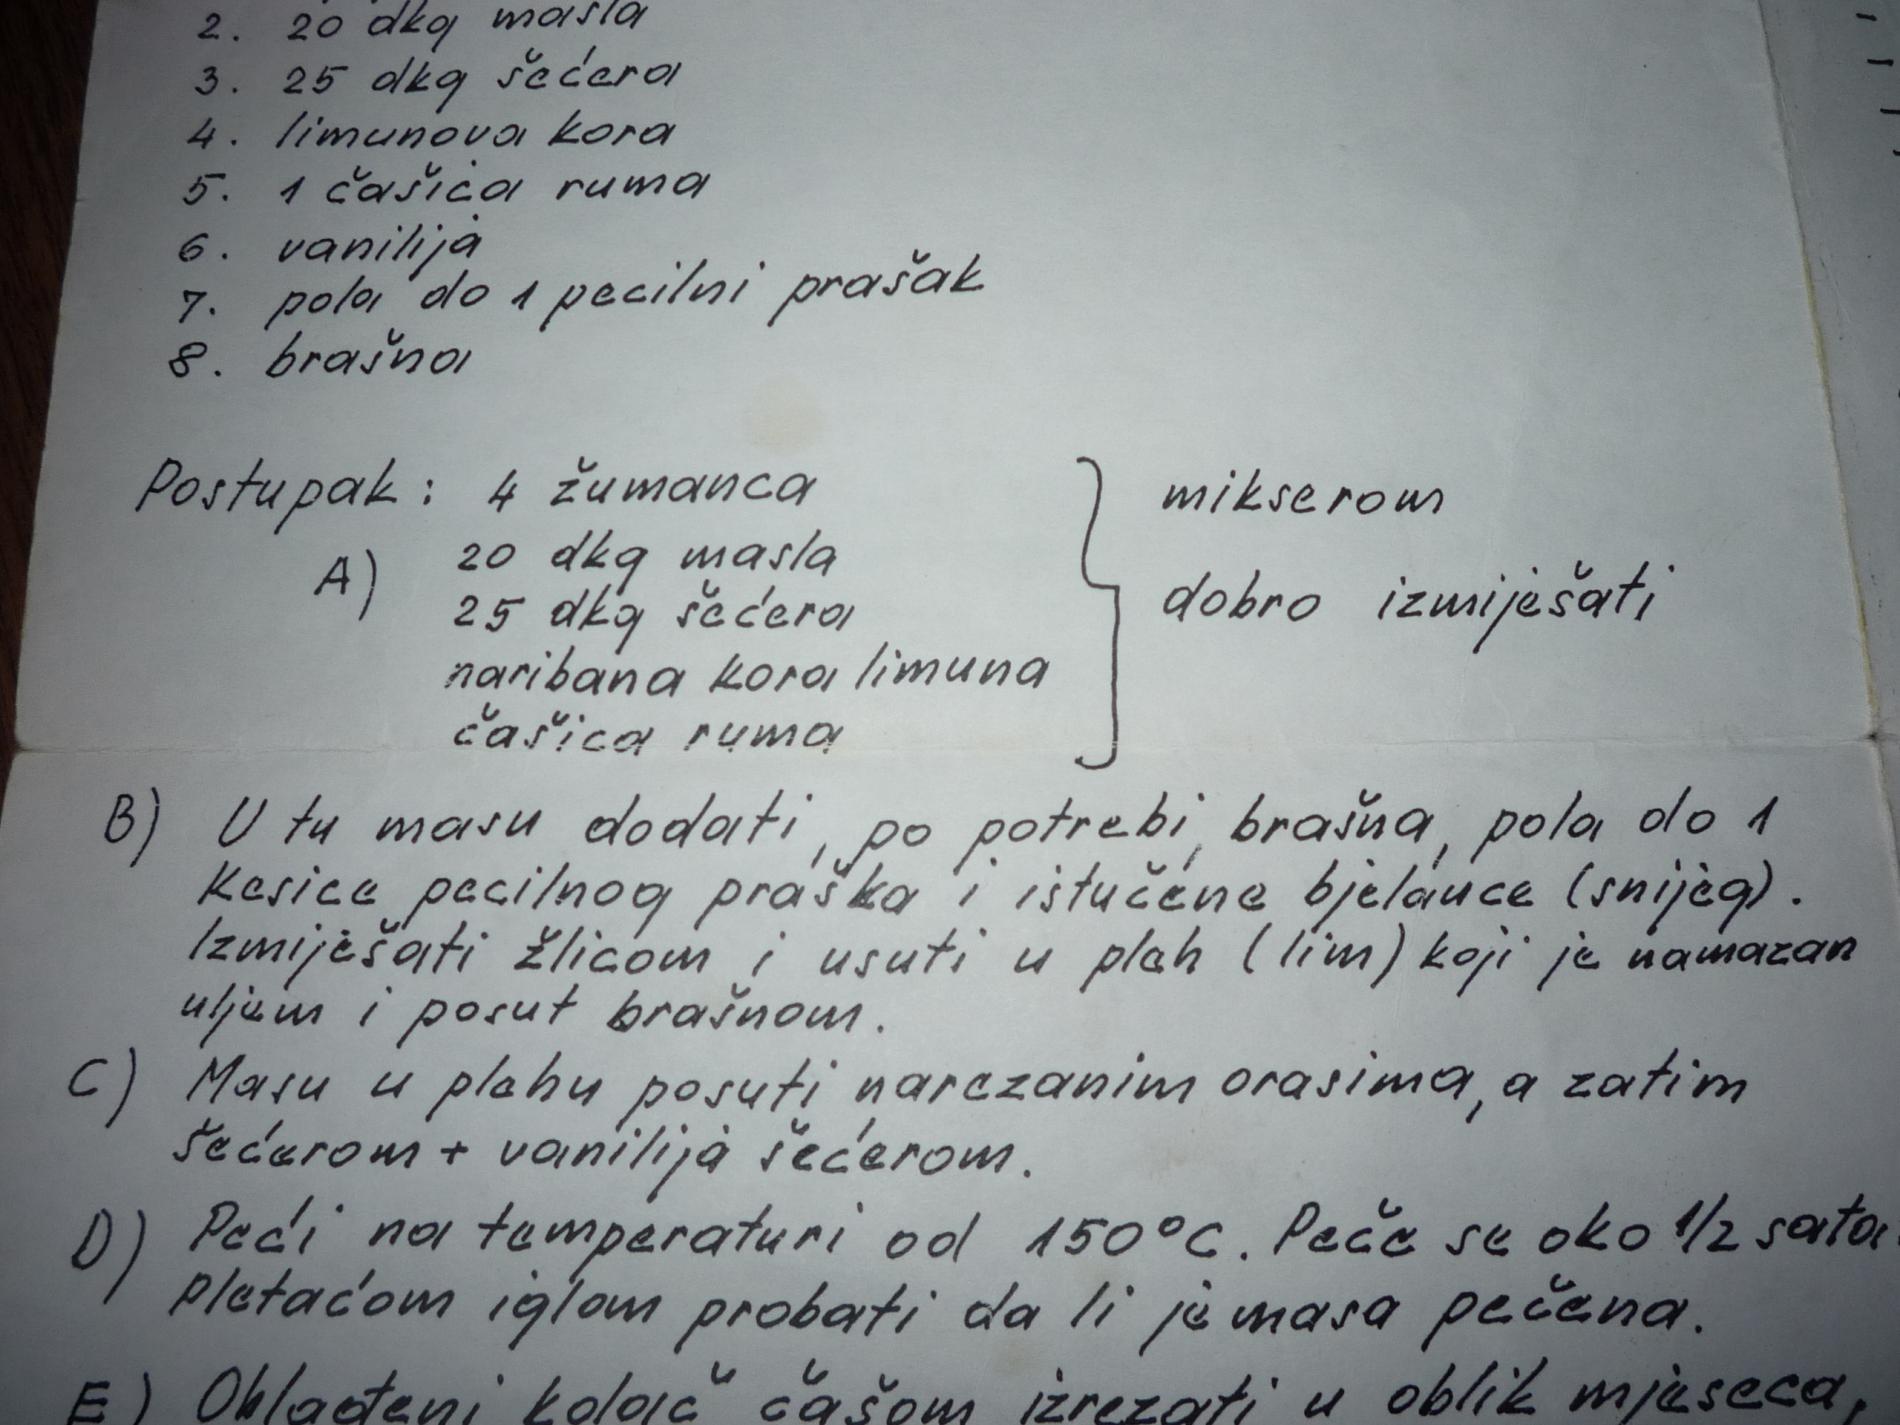 2. 20 dkg masla
3. 25 dkg šećera
4. limunova kora
5. 1 čašica ruma
6. vanilija
7. pola do 1 pecilni prašak
8. brašna
Postupak: 4 žumanca
A) 20 dkg masla
25 dkg šećera
naribana kora limuna
čašica ruma
mikserom
dobro izmiješati
B) U tu masu dodati, po potrebi, brašna, pola do 1
kesice pecilnog praška i istučene bjelance (snijeg).
Izmiješati žlicom i usuti u pleh (lim) koji je namazan
uljem i posut brašnom.
C) Masu u plehu posuti narezanim orasima, a zatim
šećerom + vanilija šećerom.
D) Peći na temperaturi od 150°C. Peče se oko 1/2 sata.
Pletaćom iglom probati da li je masa pečena.
E) Ohlađeni kolač čašom izrezati u oblik mjeseca,